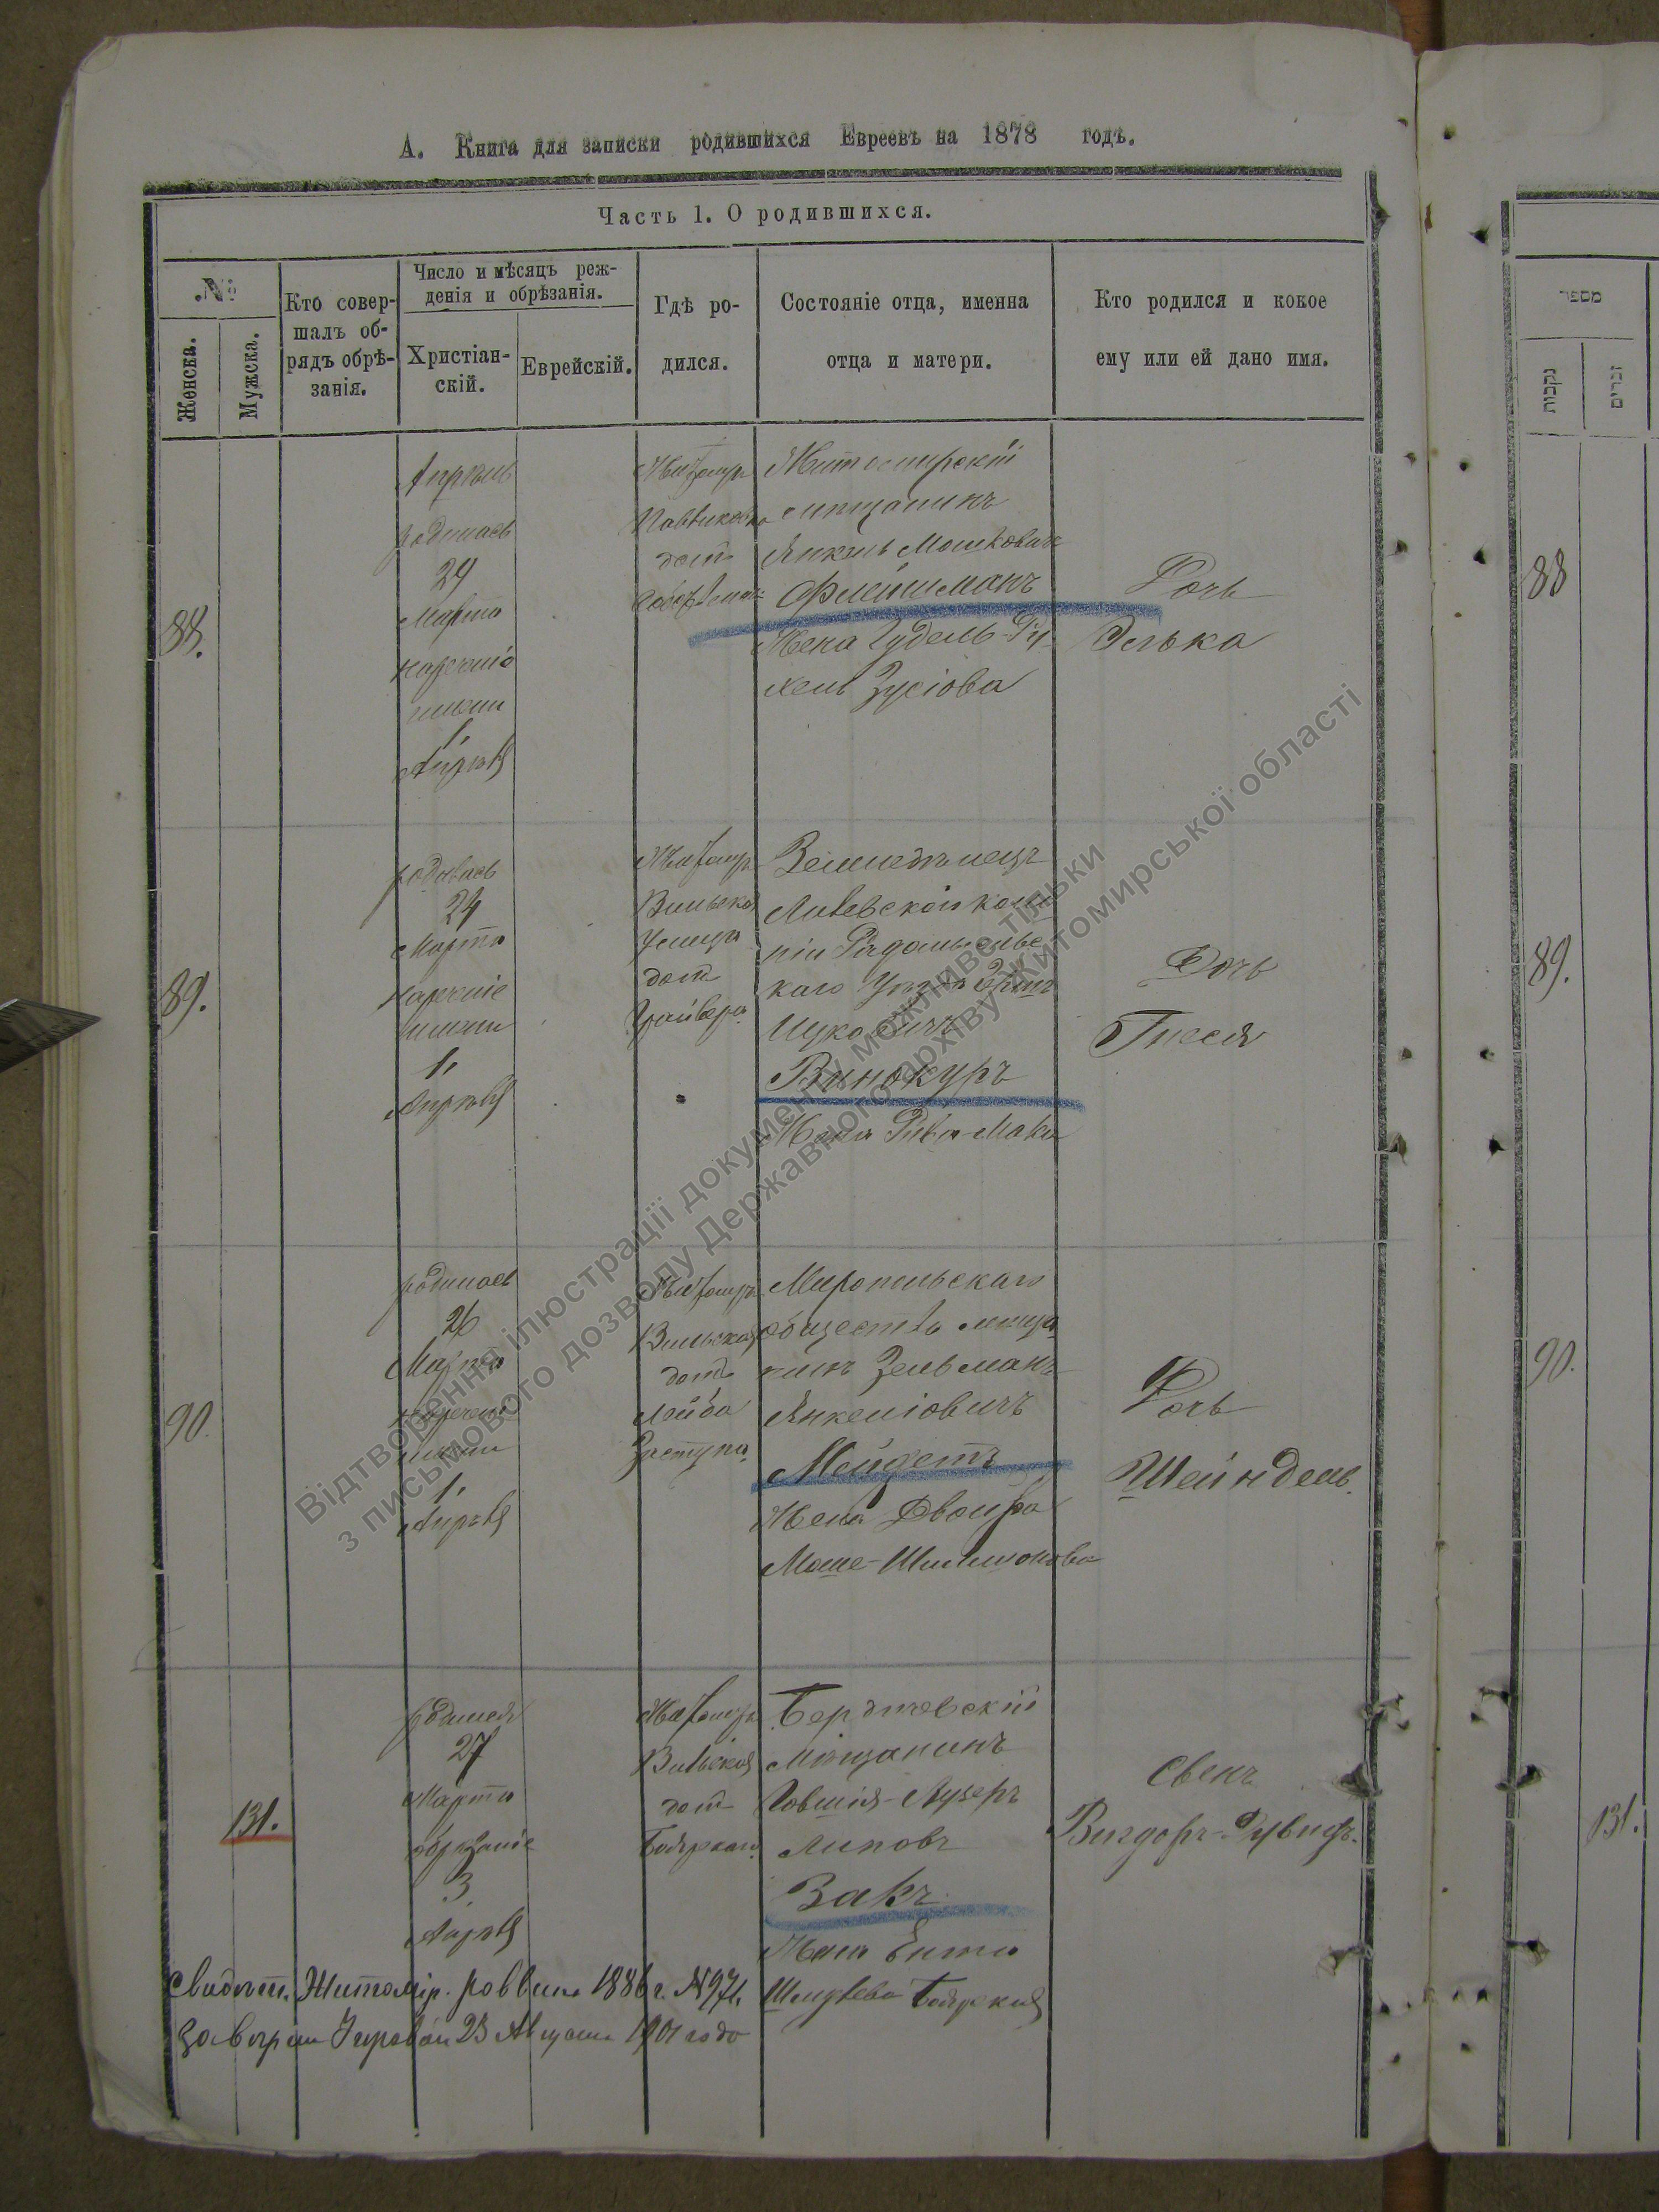 А. Книга для записки родившихся Евреевъ на 1878 годъ.
Часть 1. О родившихся.
№
Женска.
Мужска.
Кто совер-
шалъ об-
рядъ обрѣ-
занія.
Число и мѣсяцъ реж-
денія и обрѣзанія.
Христіан-
скій.
Еврейскій.
Гдѣ ро-
дился.
Состояніе отца, именна
отца и матери.
Кто родился и кокое
ему или ей дано имя.
88.
родилась
29
Марта
нареченіе
имени
1,
Апрѣля
Житомиръ
домъ
Житомирскій
мѣщанинъ
Янкель Мошковичъ
Флейшманъ
Жена Гудель-Ру-
хель Зусіова
Дочь
Элька
89.
родилась
24
Марта
нареченіе
имени
1,
Апрѣля
Житомиръ
Вильская
Улица
домъ
Земледѣлецъ
каго Уѣзда
Ицковичъ
Винокуръ
Жена Рива-Малка
Дочь
Гисся
90.
родилась
26
Марта
нареченіе
имени
1,
Апрѣля
Житомиръ
Вильская
домъ
Лейба
Миропильскаго
общества мѣща
нинъ Зельманъ
Янкеліовичъ
Жена Двойра
Моше-Шлимонова
Дочь
Шейндель.
131.
родился
27
Марта
обрѣзаніе
3.
Апрѣля
Житомиръ
Вильская
домъ
Боярскаго.
Бердичевскій
мѣщанинъ
Іовшія-Лузеръ
Липовъ
Закъ
Жена Ента
Боярская
Сынъ
Вигдоръ-Дувидъ.
Свидѣт. Житомір. раввина 1886 г. №971.
23 Августа 1901 года
מספר
נקבות
זכרים
88
89.
90.
131.
Відтворення ілюстрації документу можливе тільки
з письмового дозволу Державного архіву Житомирської області